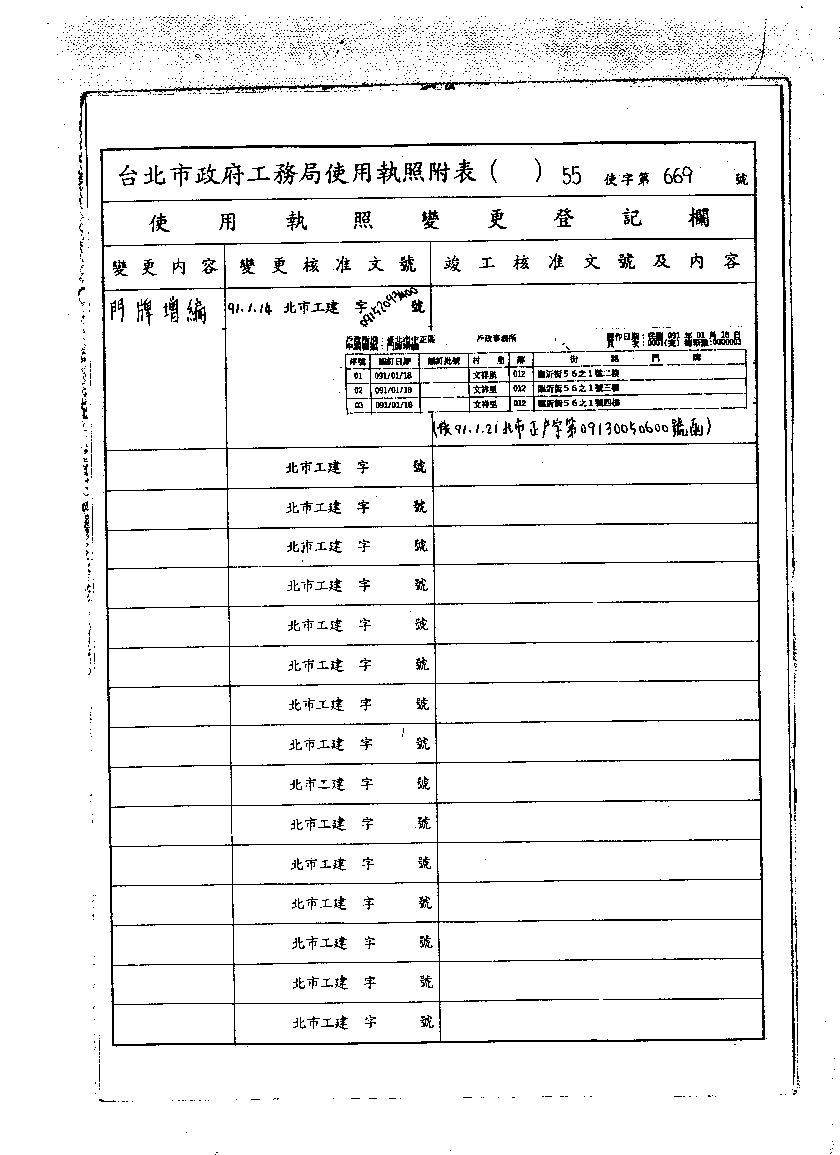 台北市政府工務局使用執照附表（　）55 使字第 669 號
使用執照變更登記欄
變更內容 變更核准文號 竣工核准文號及內容
門牌增編 91.1.14 北市工建 字 號
戶政事務所
序號 編釘日期 村里 鄰 街路門牌
01 091/01/18 文祥里 012 臨沂街56之1號二樓
02 091/01/18 文祥里 012 臨沂街56之1號三樓
03 091/01/18 文祥里 012 臨沂街56之1號四樓
91.1.21北市正戶字第09130050600號函)
北市工建 字 號
北市工建 字 號
北市工建 字 號
北市工建 字 號
北市工建 字 號
北市工建 字 號
北市工建 字 號
北市工建 字 號
北市工建 字 號
北市工建 字 號
北市工建 字 號
北市工建 字 號
北市工建 字 號
北市工建 字 號
北市工建 字 號